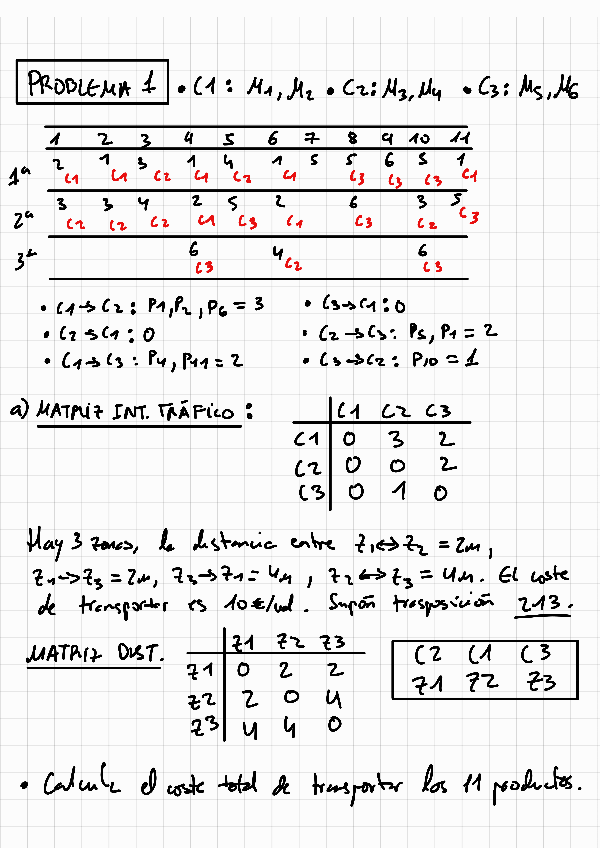 PROBLEMA 1 • C1 : M1, M2 • C2: M3, M4 • C3: M5, M6
1 2 3 4 5 6 7 8 9 10 11
1ª 2 C1 1 C1 3 C2 1 C1 4 C2 1 C1 5 5 C3 6 C3 5 C3 1 C1
2ª 3 C2 3 C2 4 C2 2 C1 5 C3 2 C1 6 C3 3 C2 5 C3
3ª 6 C3 4 C2 6 C3
• C1→C2 : P1, P2, P6 = 3 • C3→C1 : 0
• C2→C1 : 0 • C2→C3: P5, P1 = 2
• C1→C3 : P4, P11 = 2 • C3→C2: P10 = 1
a) MATRIZ INT. TRÁFICO :
C1 C2 C3
C1 0 3 2
C2 0 0 2
C3 0 1 0
Hay 3 zonas, la distancia entre Z1↔Z2 = 2m,
Z1→Z3 = 2m, Z3→Z1 = 4m, Z2↔Z3 = 4m. El coste
de transportar es 10€/ud. Supón trasposición 213.
MATRIZ DIST.
Z1 Z2 Z3
Z1 0 2 2
Z2 2 0 4
Z3 4 4 0
C2 C1 C3
Z1 Z2 Z3
• Calcula el coste total de transportar los 11 productos.